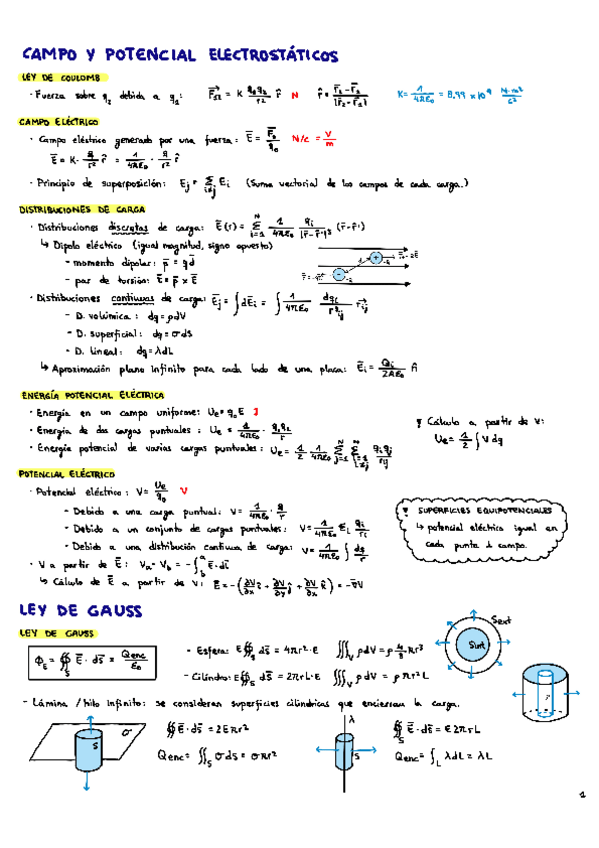 CAMPO Y POTENCIAL ELECTROSTÁTICOS
LEY DE COULOMB
· Fuerza sobre q₂ debida a q₁: F⃗₁₂ = K q₁q₂/r² r̂ N r̂ = (r⃗₂ - r⃗₁)/|r⃗₂ - r⃗₁| K = 1/4πε₀ = 8,99 × 10⁹ N·m²/C²
CAMPO ELÉCTRICO
· Campo eléctrico generado por una fuerza: E̅ = F̅₀/q₀ N/C = V/m
E̅ = K · q/r² r̂ = 1/4πε₀ · q/r² r̂
· Principio de superposición: Ej = Σ i≠j Ei (Suma vectorial de los campos de cada carga.)
DISTRIBUCIONES DE CARGA
· Distribuciones discretas de carga: E̅(r) = Σ i=1 N 1/4πε₀ qi/|r̅-r̅'|³ (r̅-r̅')
↳ Dipolo eléctrico (igual magnitud, signo opuesto)
- momento dipolar: p̅ = q d̅
- par de torsión: τ̅ = p̅ × E̅
· Distribuciones continuas de carga: E̅j = ∫ dE̅i = ∫ 1/4πε₀ dqi/r²ij r̂ij
- D. volúmica: dq = ρdV
- D. superficial: dq = σds
- D. lineal: dq = λdL
↳ Aproximación plano infinito para cada lado de una placa: E̅i = Qi/2Aε₀ n̂
ENERGÍA POTENCIAL ELÉCTRICA
· Energía en un campo uniforme: Ue = q₀E J
· Energía de dos cargas puntuales: Ue = 1/4πε₀ · q₁q₂/r
· Energía potencial de varias cargas puntuales: Ue = 1/2 1/4πε₀ Σ j=1 N Σ i=1 i≠j N qiqj/rij
! Cálculo a partir de V:
Ue = 1/2 ∫ V dq
POTENCIAL ELÉCTRICO
· Potencial eléctrico: V = Ue/q₀ V
- Debido a una carga puntual: V = 1/4πε₀ · q/r
- Debido a un conjunto de cargas puntuales: V = 1/4πε₀ Σi qi/ri
- Debido a una distribución continua de carga: V = 1/4πε₀ ∫ dq/r
· V a partir de E̅: Va - Vb = -∫ E̅·dl̅
↳ Cálculo de E̅ a partir de V: E̅ = -(∂V/∂x î + ∂V/∂y ĵ + ∂V/∂z k̂) = -∇V
! SUPERFICIES EQUIPOTENCIALES
↳ potencial eléctrico igual en
cada punto d campo.
LEY DE GAUSS
LEY DE GAUSS
ΦE = ∯S E̅ · ds̅ = Qenc/ε₀
- Esfera: E∯S ds̅ = 4πr²·E ∭V ρdV = ρ 4/3 πr³
- Cilindro: E∯S ds̅ = 2πrL·E ∭V ρdV = ρπr²L
Sext
Sint
r
- Lámina / hilo infinito: se consideran superficies cilíndricas que encierran la carga.
σ
S
∯S E̅·ds̅ = 2Eπr²
Qenc = ∬S σds = σπr²
λ
S
∯S E̅·ds = E2πrL
Qenc = ∫L λdL = λL
1